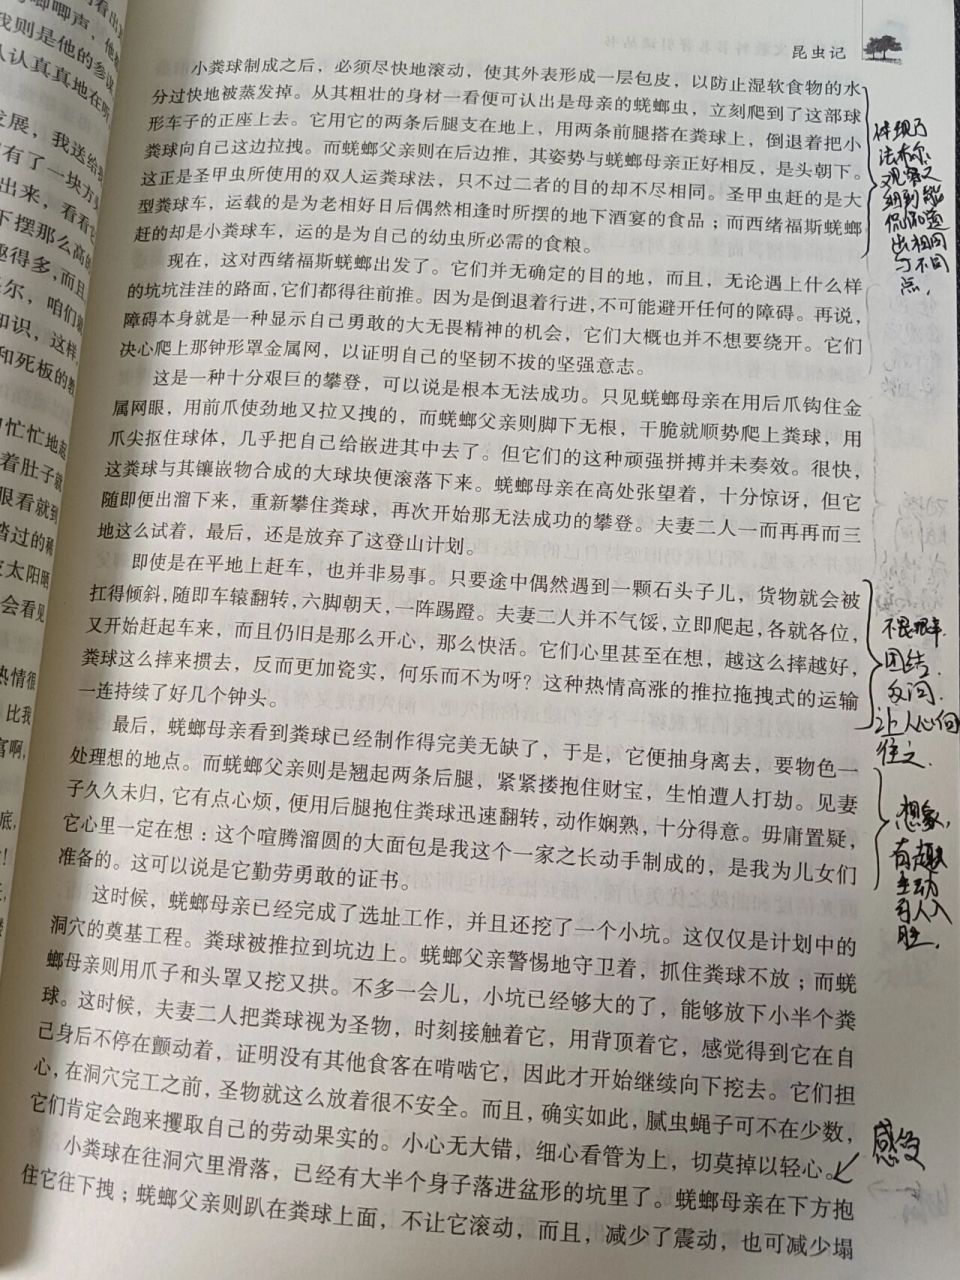 昆虫记
小粪球制成之后，必须尽快地滚动，使其外表形成一层包皮，以防止湿软食物的水
分过快地被蒸发掉。从其粗壮的身材一看便可认出是母亲的蜣螂虫，立刻爬到了这部球
形车子的正座上去。它用它的两条后腿支在地上，用两条前腿搭在粪球上，倒退着把小
粪球向自己这边拉拽。而蜣螂父亲则在后边推，其姿势与蜣螂母亲正好相反，是头朝下。
这正是圣甲虫所使用的双人运粪球法，只不过二者的目的却不尽相同。圣甲虫赶的是大
型粪球车，运载的是为老相好日后偶然相逢时所摆的地下酒宴的食品；而西绪福斯蜣螂
赶的却是小粪球车，运的是为自己的幼虫所必需的食粮。
现在，这对西绪福斯蜣螂出发了。它们并无确定的目的地，而且，无论遇上什么样
的坑坑洼洼的路面，它们都得往前推。因为是倒退着行进，不可能避开任何的障碍。再说，
障碍本身就是一种显示自己勇敢的大无畏精神的机会，它们大概也并不想要绕开。它们
决心爬上那钟形罩金属网，以证明自己的坚韧不拔的坚强意志。
这是一种十分艰巨的攀登，可以说是根本无法成功。只见蜣螂母亲在用后爪钩住金
属网眼，用前爪使劲地又拉又拽的，而蜣螂父亲则脚下无根，干脆就顺势爬上粪球，用
爪尖抠住球体，几乎把自己给嵌进其中去了。但它们的这种顽强拼搏并未奏效。很快，
这粪球与其镶嵌物合成的大球块便滚落下来。蜣螂母亲在高处张望着，十分惊讶，但它
随即便出溜下来，重新攀住粪球，再次开始那无法成功的攀登。夫妻二人一而再再而三
地这么试着，最后，还是放弃了这登山计划。
即使是在平地上赶车，也并非易事。只要途中偶然遇到一颗石头子儿，货物就会被
扛得倾斜，随即车辕翻转，六脚朝天，一阵踢蹬。夫妻二人并不气馁，立即爬起，各就各位，
又开始赶起车来，而且仍旧是那么开心，那么快活。它们心里甚至在想，越这么摔越好，
粪球这么摔来掼去，反而更加瓷实，何乐而不为呀？这种热情高涨的推拉拖拽式的运输
一连持续了好几个钟头。
最后，蜣螂母亲看到粪球已经制作得完美无缺了，于是，它便抽身离去，要物色一
处理想的地点。而蜣螂父亲则是翘起两条后腿，紧紧搂抱住财宝，生怕遭人打劫。见妻
子久久未归，它有点心烦，便用后腿抱住粪球迅速翻转，动作娴熟，十分得意。毋庸置疑，
它心里一定在想：这个喧腾溜圆的大面包是我这个一家之长动手制成的，是我为儿女们
准备的。这可以说是它勤劳勇敢的证书。
这时候，蜣螂母亲已经完成了选址工作，并且还挖了一个小坑。这仅仅是计划中的
洞穴的奠基工程。粪球被推拉到坑边上。蜣螂父亲警惕地守卫着，抓住粪球不放；而蜣
螂母亲则用爪子和头罩又挖又拱。不多一会儿，小坑已经够大的了，能够放下小半个粪
球。这时候，夫妻二人把粪球视为圣物，时刻接触着它，用背顶着它，感觉得到它在自
己身后不停在颤动着，证明没有其他食客在啃啮它，因此才开始继续向下挖去。它们担
心，在洞穴完工之前，圣物就这么放着很不安全。而且，确实如此，腻虫蝇子可不在少数，
它们肯定会跑来攫取自己的劳动果实的。小心无大错，细心看管为上，切莫掉以轻心。
小粪球在往洞穴里滑落，已经有大半个身子落进盆形的坑里了。蜣螂母亲在下方抱
住它往下拽；蜣螂父亲则趴在粪球上面，不让它滚动，而且，减少了震动，也可减少塌
体现了
法布尔
观察
出相同
与不同
点，
不畏艰辛
团结
反问
让人心向
往之
想象，
有趣
生动
引人入
胜
感受